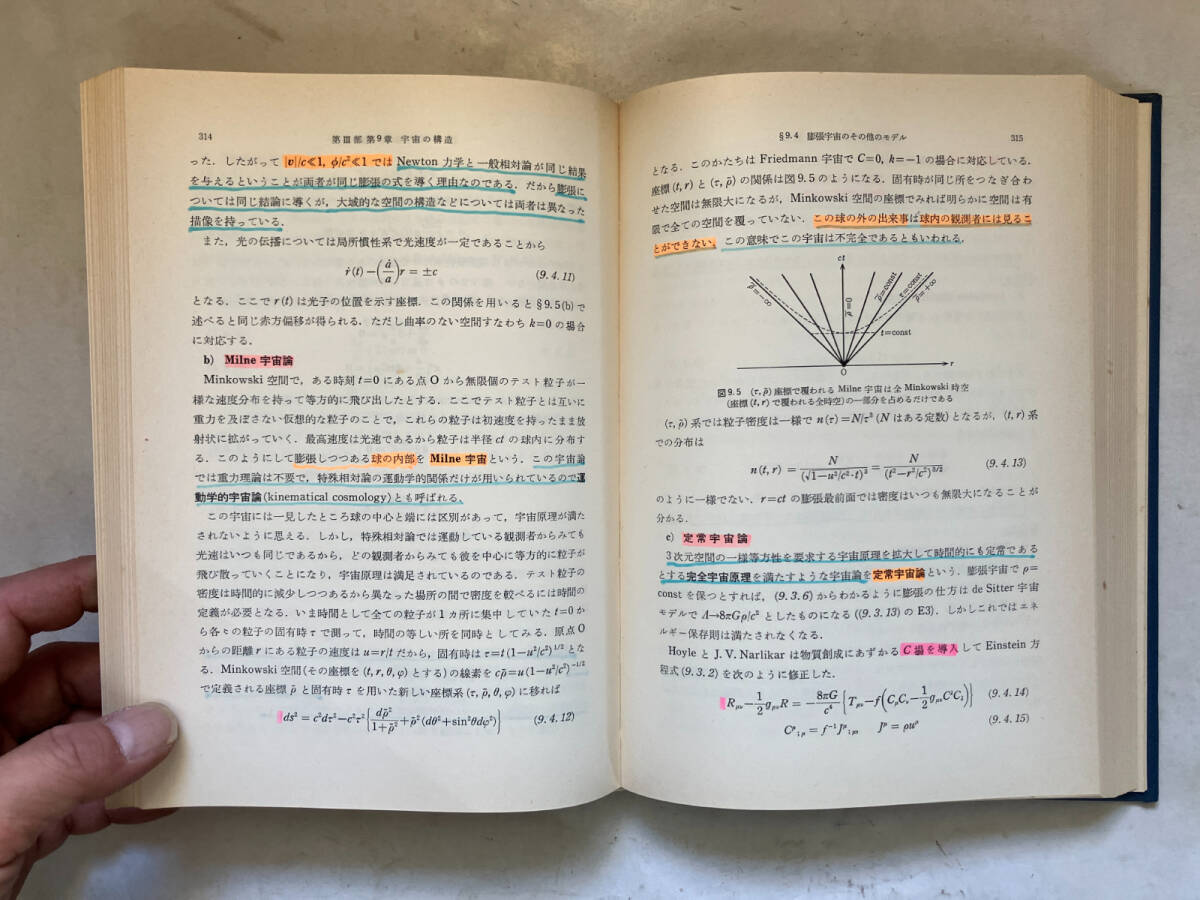 314
第Ⅲ部 第9章 宇宙の構造
った．したがって |v|/c≪1, φ/c²≪1 では Newton 力学と一般相対論が同じ結果
を与えるということが両者が同じ膨張の式を導く理由なのである．だから膨張に
ついては同じ結論に導くが，大域的な空間の構造などについては両者は異なった
描像を持っている．
また，光の伝播については局所慣性系で光速度が一定であることから
ṙ(t)−(ȧ/a)r = ±c (9.4.11)
となる．ここで r(t) は光子の位置を示す座標．この関係を用いると §9.5(b) で
述べると同じ赤方偏移が得られる．ただし曲率のない空間すなわち k=0 の場合
に対応する．
b) Milne 宇宙論
Minkowski 空間で，ある時刻 t=0 にある点 O から無限個のテスト粒子が一
様な速度分布を持って等方的に飛び出したとする．ここでテスト粒子とは互いに
重力を及ぼさない仮想的な粒子のことで，これらの粒子は初速度を持ったまま放
射状に拡がっていく．最高速度は光速であるから粒子は半径 ct の球内に分布す
る．このようにして膨張しつつある球の内部を Milne 宇宙という．この宇宙論
では重力理論は不要で，特殊相対論の運動学的関係だけが用いられているので運
動学的宇宙論(kinematical cosmology)とも呼ばれる．
この宇宙には一見したところ球の中心と端には区別があって，宇宙原理が満た
されないように思える．しかし，特殊相対論では運動している観測者からみても
光速はいつも同じであるから，どの観測者からみても彼を中心に等方的に粒子が
飛び散っていくことになり，宇宙原理は満足されているのである．テスト粒子の
密度は時間的に減少しつつあるから異なった場所の間で密度を較べるには時間の
定義が必要となる．いま時間として全ての粒子が1ヵ所に集中していた t=0 か
ら各々の粒子の固有時 τ で測って，時間の等しい所を同時としてみる．原点 O
からの距離 r にある粒子の速度は u=r/t だから，固有時は τ=t(1−u²/c²)^{1/2} とな
る．Minkowski 空間(その座標を (t, r, θ, φ) とする)の線素を cρ̄=u(1−u²/c²)^{−1/2}
で定義される座標 ρ̄ と固有時 τ を用いた新しい座標系 (τ, ρ̄, θ, φ) に移れば
ds² = c²dτ²−c²τ²{dρ̄²/(1+ρ̄²)+ρ̄²(dθ²+sin²θdφ²)} (9.4.12)
§9.4 膨張宇宙のその他のモデル
315
となる．このかたちは Friedmann 宇宙で C=0, k=−1 の場合に対応している．
座標 (t, r) と (τ, ρ̄) の関係は図9.5のようになる．固有時が同じ所をつなぎ合わ
せた空間は無限大になるが，Minkowski 空間の座標でみれば明らかに空間は有
限で全ての空間を覆っていない．この球の外の出来事は球内の観測者には見るこ
とができない．この意味でこの宇宙は不完全であるともいわれる．
ct
ρ̄=−∞
ρ̄=0
ρ̄=const
τ=const
ρ̄=+∞
t=const
O
r
図9.5 (τ, ρ̄) 座標で覆われる Milne 宇宙は全 Minkowski 時空
(座標 (t, r) で覆われる全時空)の一部分を占めるだけである
(τ, ρ̄) 系では粒子密度は一様で n(τ)=N/τ³ (N はある定数)となるが，(t, r) 系
での分布は
n(t, r) = N/(√1−u²/c²·t)³ = N/(t²−r²/c²)^{3/2} (9.4.13)
のように一様でない．r=ct の膨張最前面では密度はいつも無限大になることが
分かる．
c) 定常宇宙論
3次元空間の一様等方性を要求する宇宙原理を拡大して時間的にも定常である
とする完全宇宙原理を満たすような宇宙論を定常宇宙論という．膨張宇宙で ρ=
const を保つとすれば，(9.3.6) からわかるように膨張の仕方は de Sitter 宇宙
モデルで Λ→8πGρ/c² としたものになる((9.3.13) の E3)．しかしこれではエネ
ルギー保存則は満たされなくなる．
Hoyle と J.V. Narlikar は物質創成にあずかる C 場を導入して Einstein 方
程式 (9.3.2) を次のように修正した．
R_{μν}−1/2 g_{μν}R = −8πG/c⁴{T_{μν}−f(C_μC_ν−1/2 g_{μν}C^λC_λ)} (9.4.14)
C^μ_{;μ} = f^{−1}J^μ_{;μ}, J^μ = ρu^μ (9.4.15)